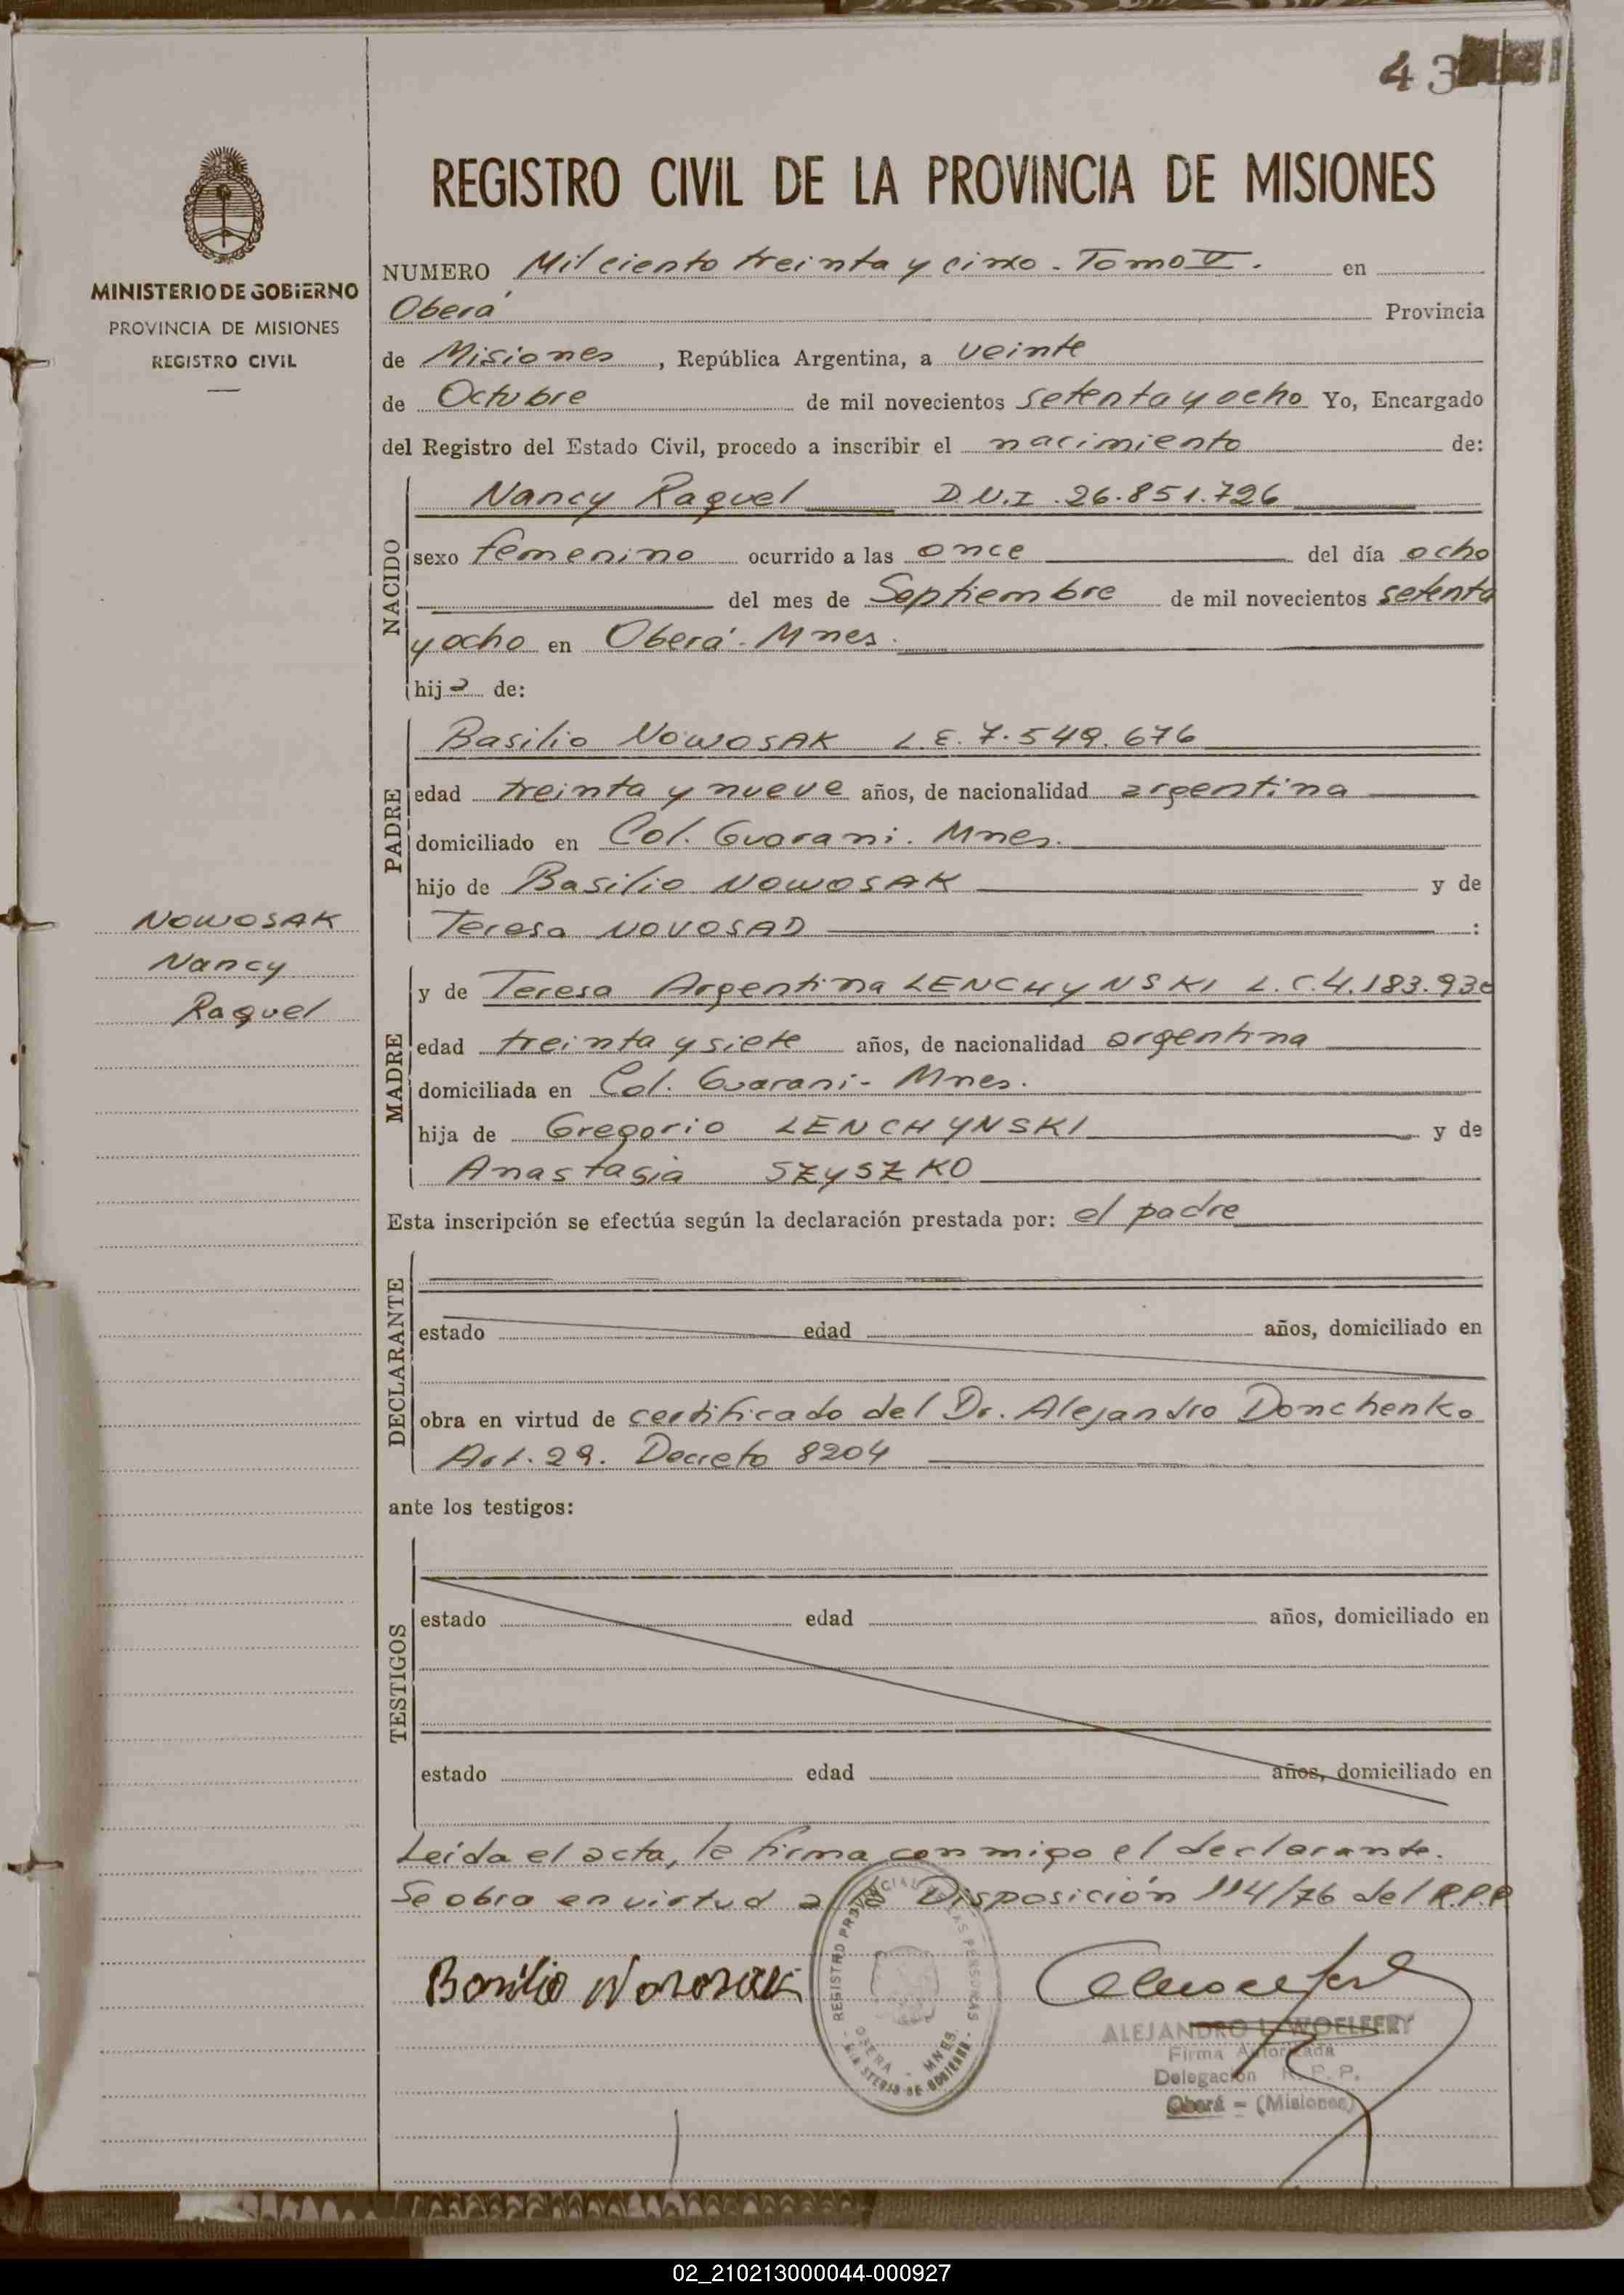 43
MINISTERIO DE GOBIERNO
PROVINCIA DE MISIONES
REGISTRO CIVIL
REGISTRO CIVIL DE LA PROVINCIA DE MISIONES
NUMERO Mil ciento treinta y cinco - Tomo V. en
Oberá Provincia
de Misiones, República Argentina, a veinte
de Octubre de mil novecientos setenta y ocho Yo, Encargado
del Registro del Estado Civil, procedo a inscribir el nacimiento de:
NACIDO
Nancy Raquel D.N.I. 26.851.726
sexo femenino ocurrido a las once del día ocho
del mes de Septiembre de mil novecientos setenta
y ocho en Oberá - Mnes.
hija de:
PADRE
Basilio NOWOSAK L.E. 7.549.676
edad treinta y nueve años, de nacionalidad argentina
domiciliado en Col. Guarani. Mnes.
hijo de Basilio NOWOSAK y de
Teresa NOVOSAD :
NOWOSAK
Nancy
Raquel
MADRE
y de Teresa Argentina LENCHYNSKI L.C. 4.183.930
edad treinta y siete años, de nacionalidad argentina
domiciliada en Col. Guarani - Mnes.
hija de Gregorio LENCHYNSKI y de
Anastasia SZYSZKO
Esta inscripción se efectúa según la declaración prestada por: el padre
DECLARANTE
estado edad años, domiciliado en
obra en virtud de certificado del Dr. Alejandro Donchenko
Art. 29. Decreto 8204
ante los testigos:
TESTIGOS
estado edad años, domiciliado en
estado edad años, domiciliado en
Leída el acta, la firma conmigo el declarante.
Se obra en virtud a la Disposición 114/76 del R.P.P
Basilio Nowosak
REGISTRO PROVINCIAL DE LAS PERSONAS
OBERA - MNES.
MINISTERIO DE GOBIERNO
ALEJANDRO L. WOELFERT
Firma Autorizada
Delegación R.P.P.
Oberá - (Misiones)
02_210213000044-000927